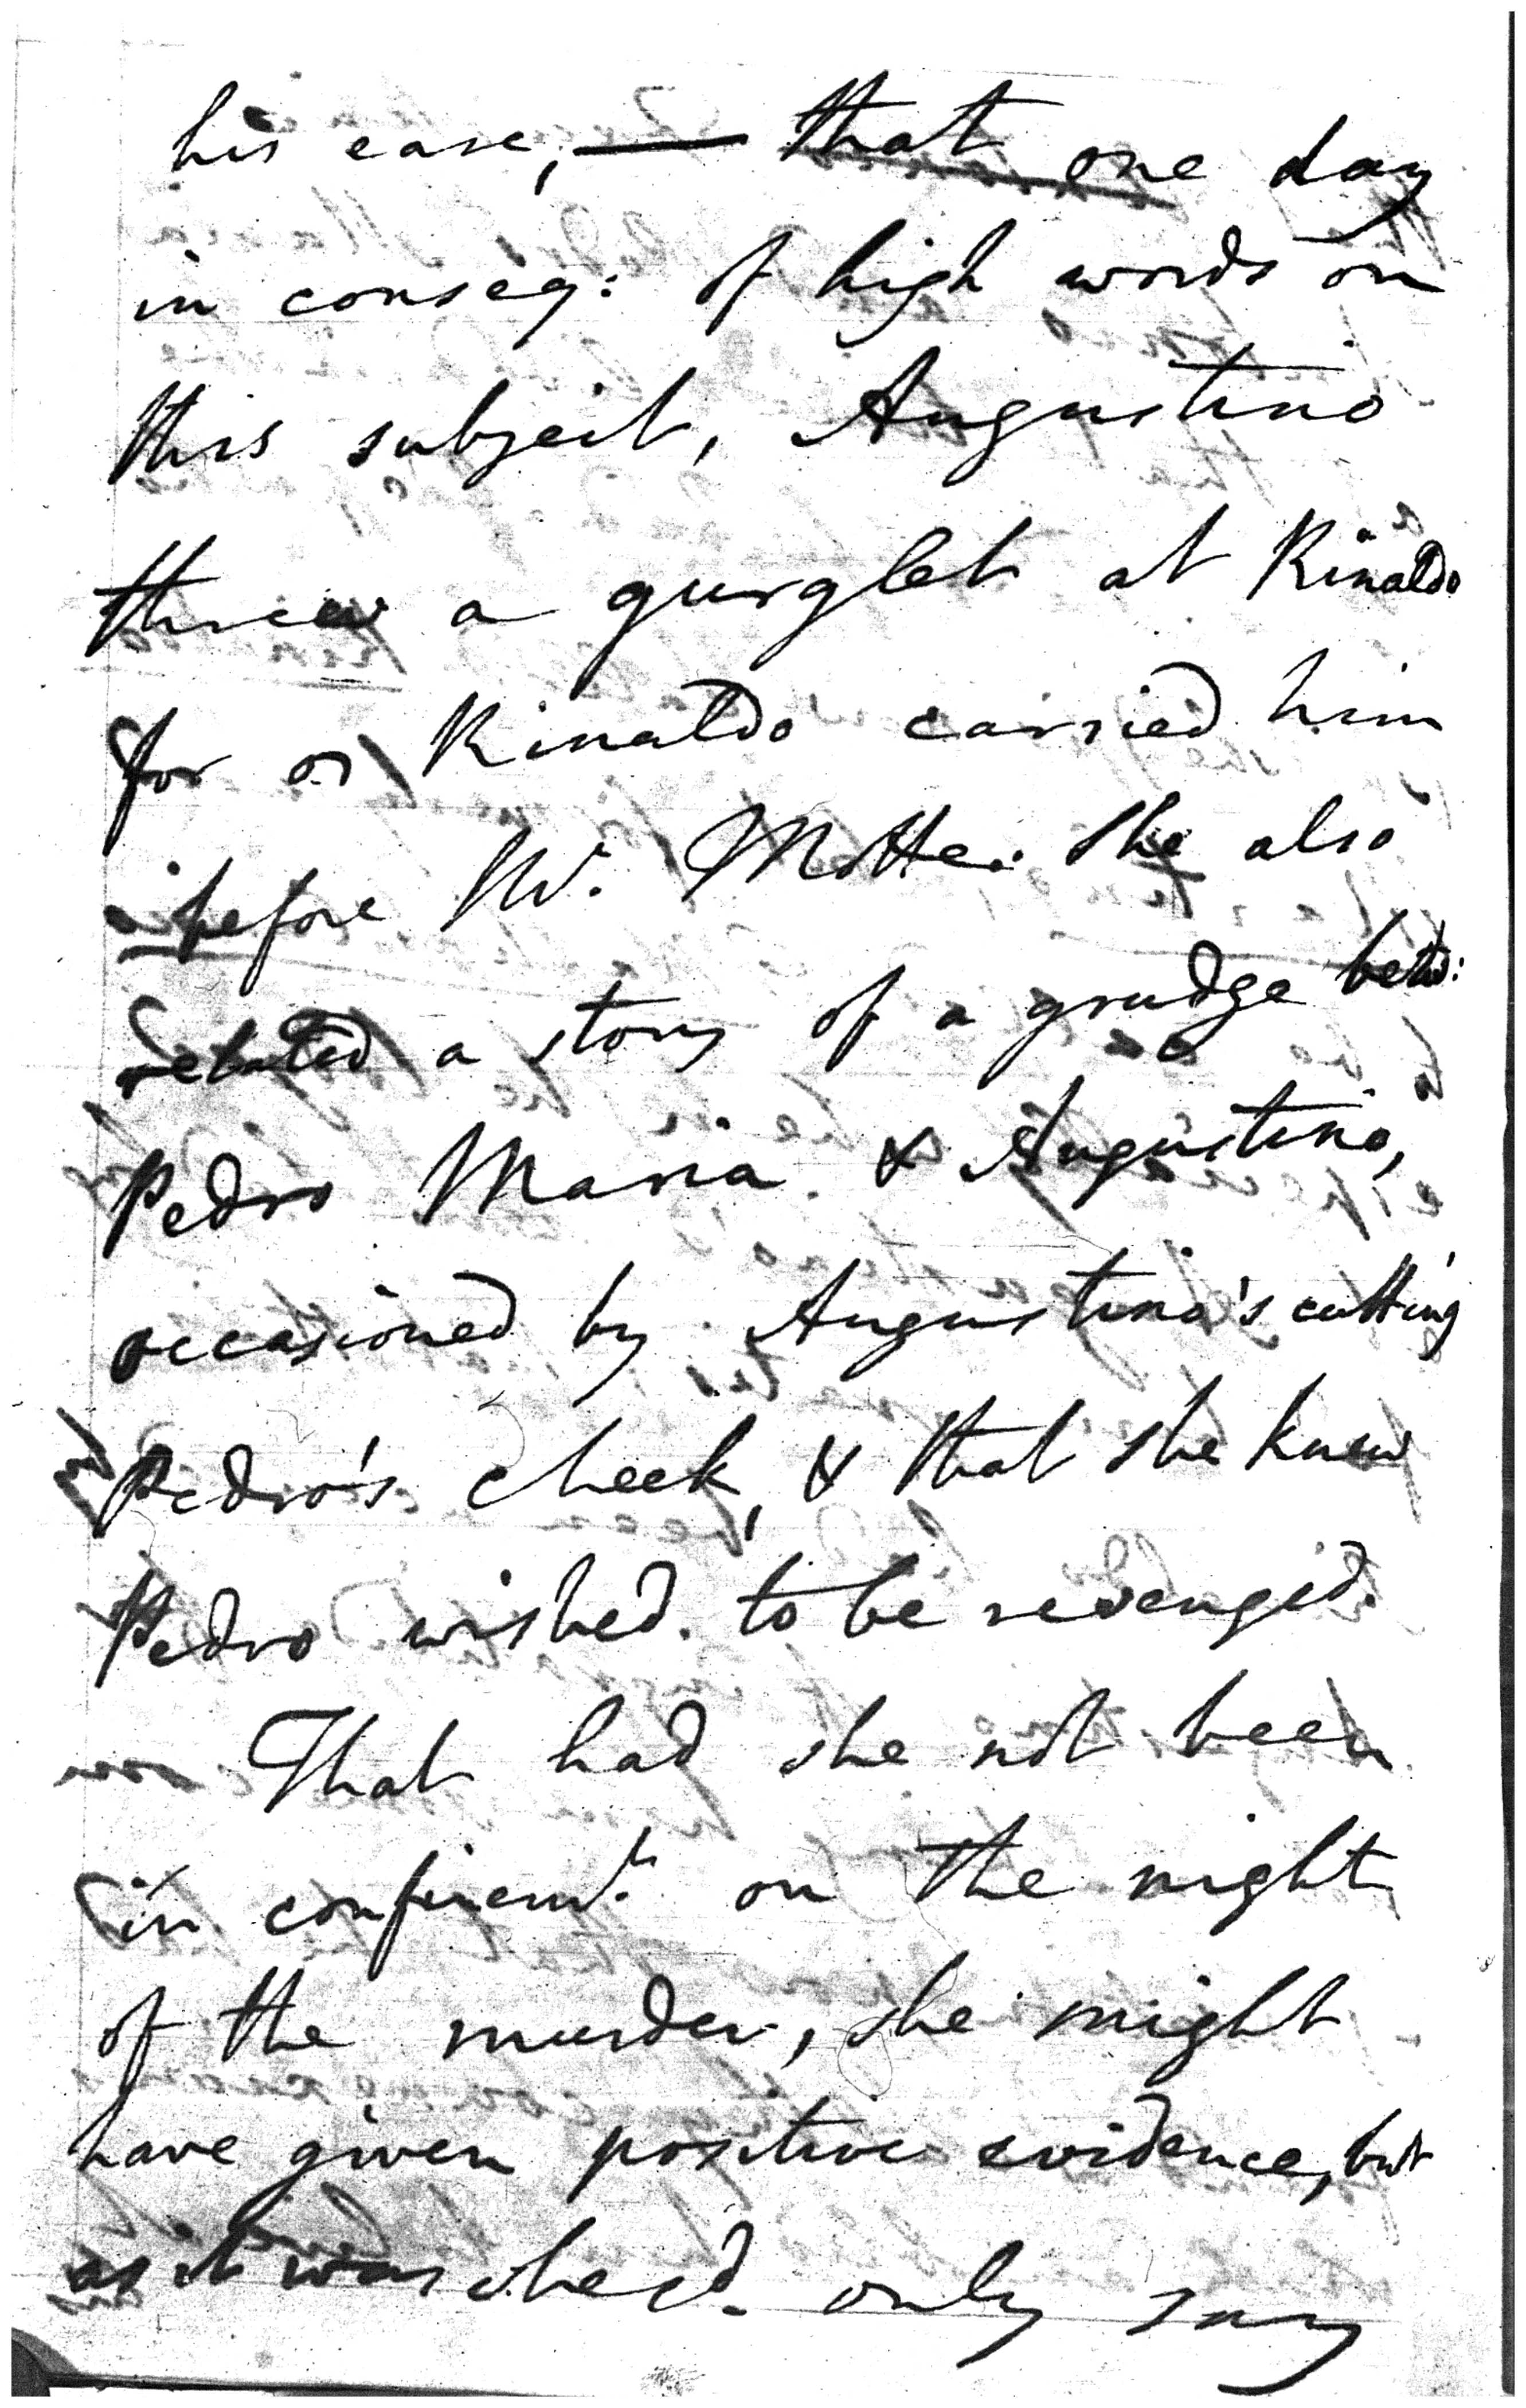 his ease, — that one day
in conseq: of high words on
this subject, Augustino
threw a gurglet at Rinaldo
for Rinaldo carried him
before Mr. Motte. She also
related a story of a grudge betw:
Pedro Maria & Augustino,
occasioned by Augustino's cutting
Pedro's cheek, & that she knew
Pedro wished to be revenged.
That had she not been
in confinemt. on the night
of the murder, she might
have given positive evidence, but
as it was she cd. only say